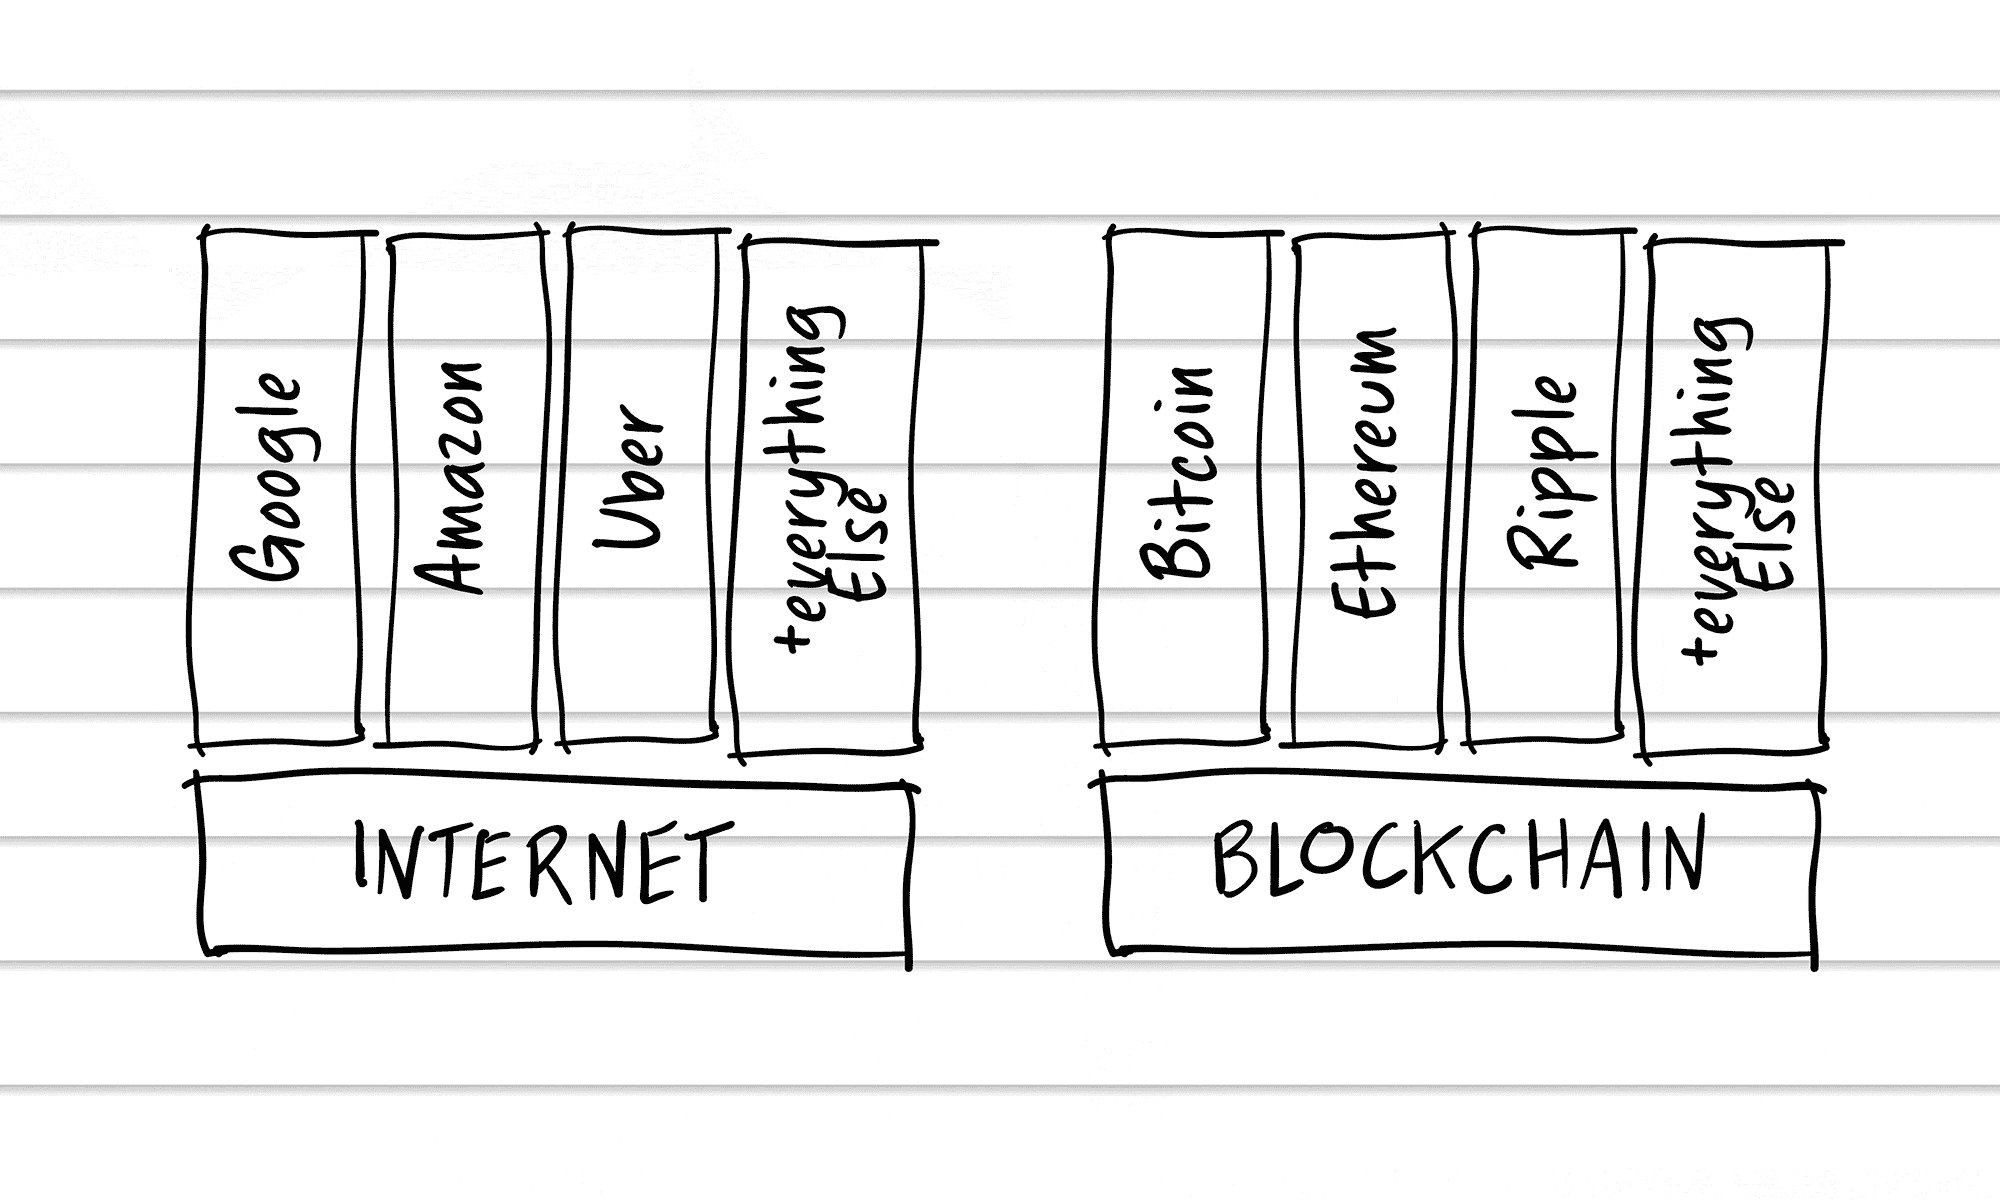 Google
Amazon
Uber
+everything
Else
INTERNET
Bitcoin
Ethereum
Ripple
+everything
Else
BLOCKCHAIN